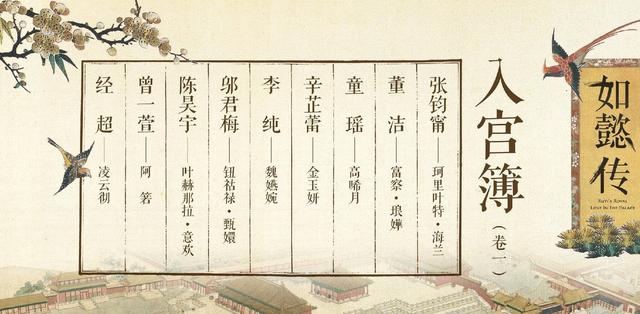 如懿传
Ruyi's Royal
Love in the Palace
入宫簿（卷一）
张钧甯——珂里叶特·海兰
董洁——富察·琅嬅
童瑶——高晞月
辛芷蕾——金玉妍
李纯——魏嬿婉
邬君梅——钮祜禄·甄嬛
陈昊宇——叶赫那拉·意欢
曾一萱——阿箬
经超——凌云彻